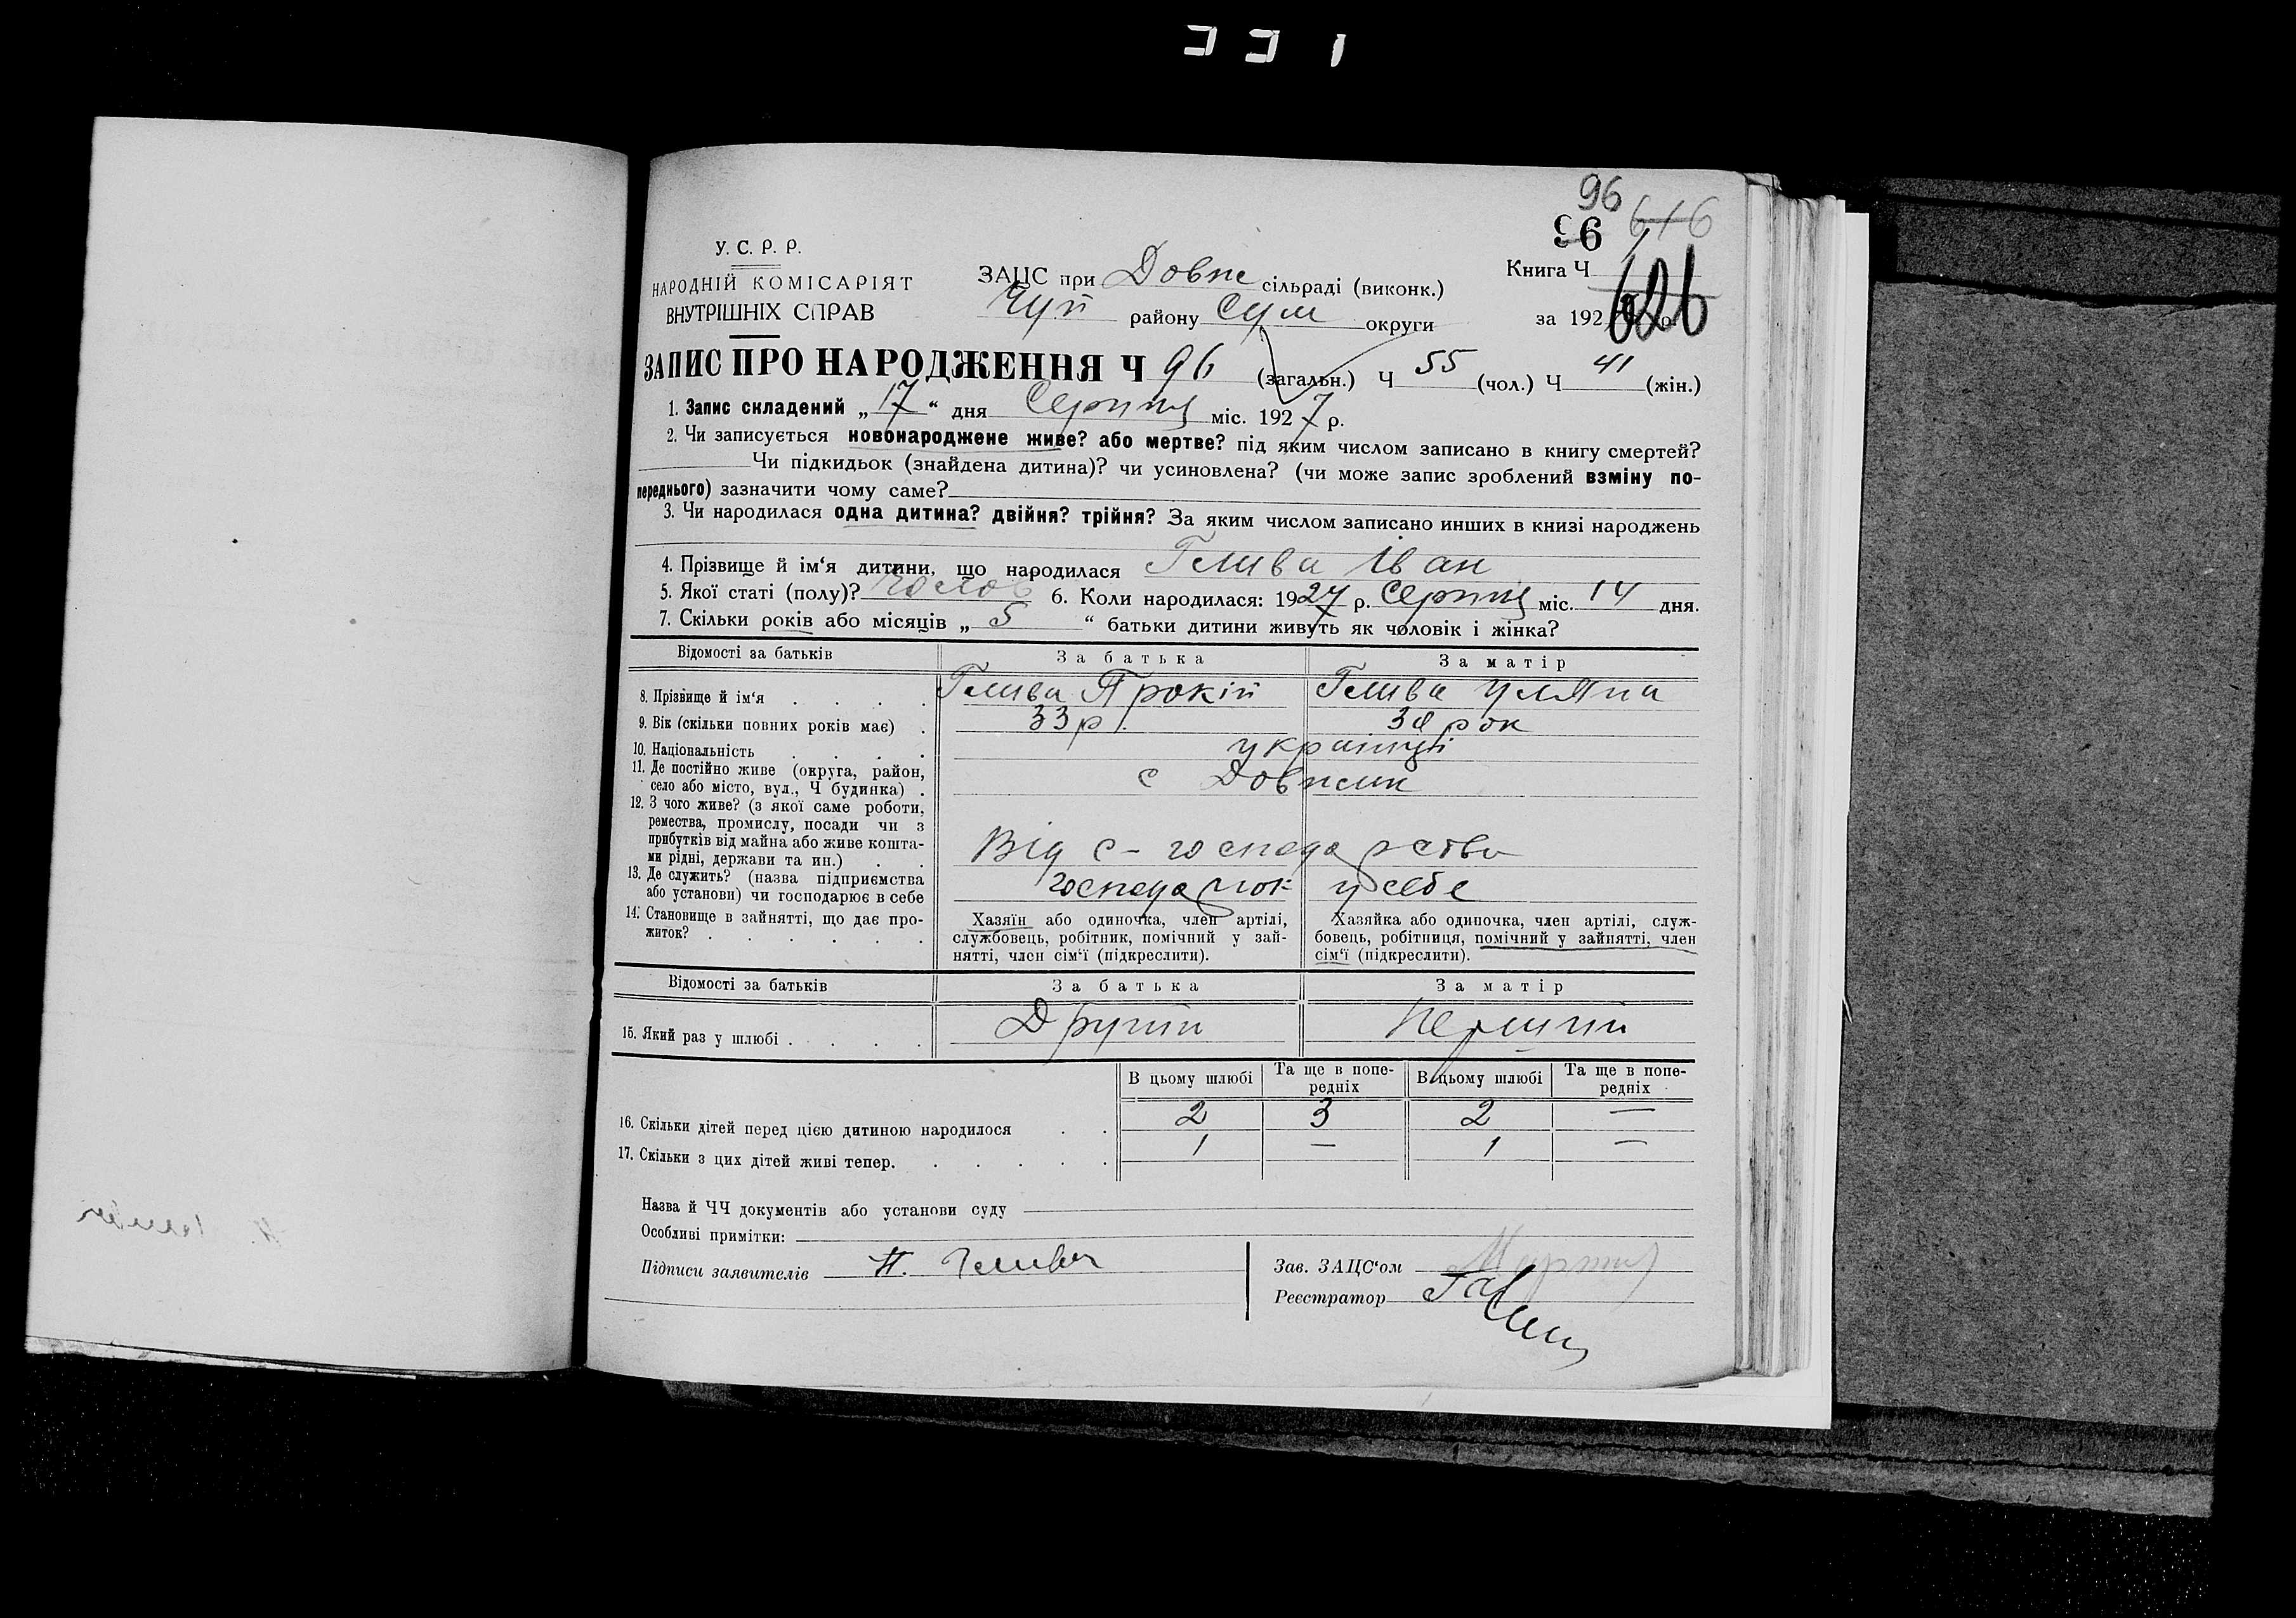 96
96 616
У. С. Р. Р.
НАРОДНІЙ КОМІСАРІЯТ
ВНУТРІШНІХ СПРАВ
ЗАЦС при Довж сільраді (виконк.)
Чуп району Сум округи
Книга Ч 1
626
за 192 р.
ЗАПИС ПРО НАРОДЖЕННЯ Ч 96 (загальн.) Ч 55 (чол.) Ч 41 (жін.)
1. Запис складений „17“ дня Серпня міс. 1927 р.
2. Чи записується новонароджене живе? або мертве? під яким числом записано в книгу смертей?
Чи підкидьок (знайдена дитина)? чи усиновлена? (чи може запис зроблений взміну по-
переднього) зазначити чому саме?
3. Чи народилася одна дитина? двійня? трійня? За яким числом записано инших в книзі народжень
4. Прізвище й ім‘я дитини, що народилася Глива Іван
5. Якої статі (полу)? Чолов 6. Коли народилася: 1927 р. Серпня міс. 14 дня.
7. Скільки років або місяців „ 5 “ батьки дитини живуть як чоловік і жінка?
Відомості за батьків За батька За матір
8. Прізвище й ім‘я . . . . Глива Прокій Глива Уляна
9. Вік (скільки повних років має) . 33 р. рок
10. Національність . . . . українці
11. Де постійно живе (округа, район,
село або місто, вул., Ч будинка) . с Довжик
12. З чого живе? (з якої саме роботи,
ремества, промислу, посади чи з
прибутків від майна або живе кошта-
ми рідні, держави та ин.) . . Від с-господарства
13. Де служить? (назва підприємства
або установи) чи господарює в себе у себе
14. Становище в зайнятті, що дає про-
житок? . . . . . .
Хазяїн або одиночка, член артілі,
службовець, робітник, помічний у зай-
нятті, член сім‘ї (підкреслити).
Хазяйка або одиночка, член артілі, служ-
бовець, робітниця, помічний у зайнятті, член
сім‘ї (підкреслити).
Відомості за батьків За батька За матір
15. Який раз у шлюбі . . . . Другий Перший
В цьому шлюбі Та ще в попе-
редніх В цьому шлюбі Та ще в попе-
редніх
16. Скільки дітей перед цією дитиною народилося . . 2 3 2 —
17. Скільки з цих дітей живі тепер. . . . . . 1 — 1 —
Назва й ЧЧ документів або установи суду
Особливі примітки:
Підписи заявителів П. Глива
Зав. ЗАЦС‘ом
Реєстратор